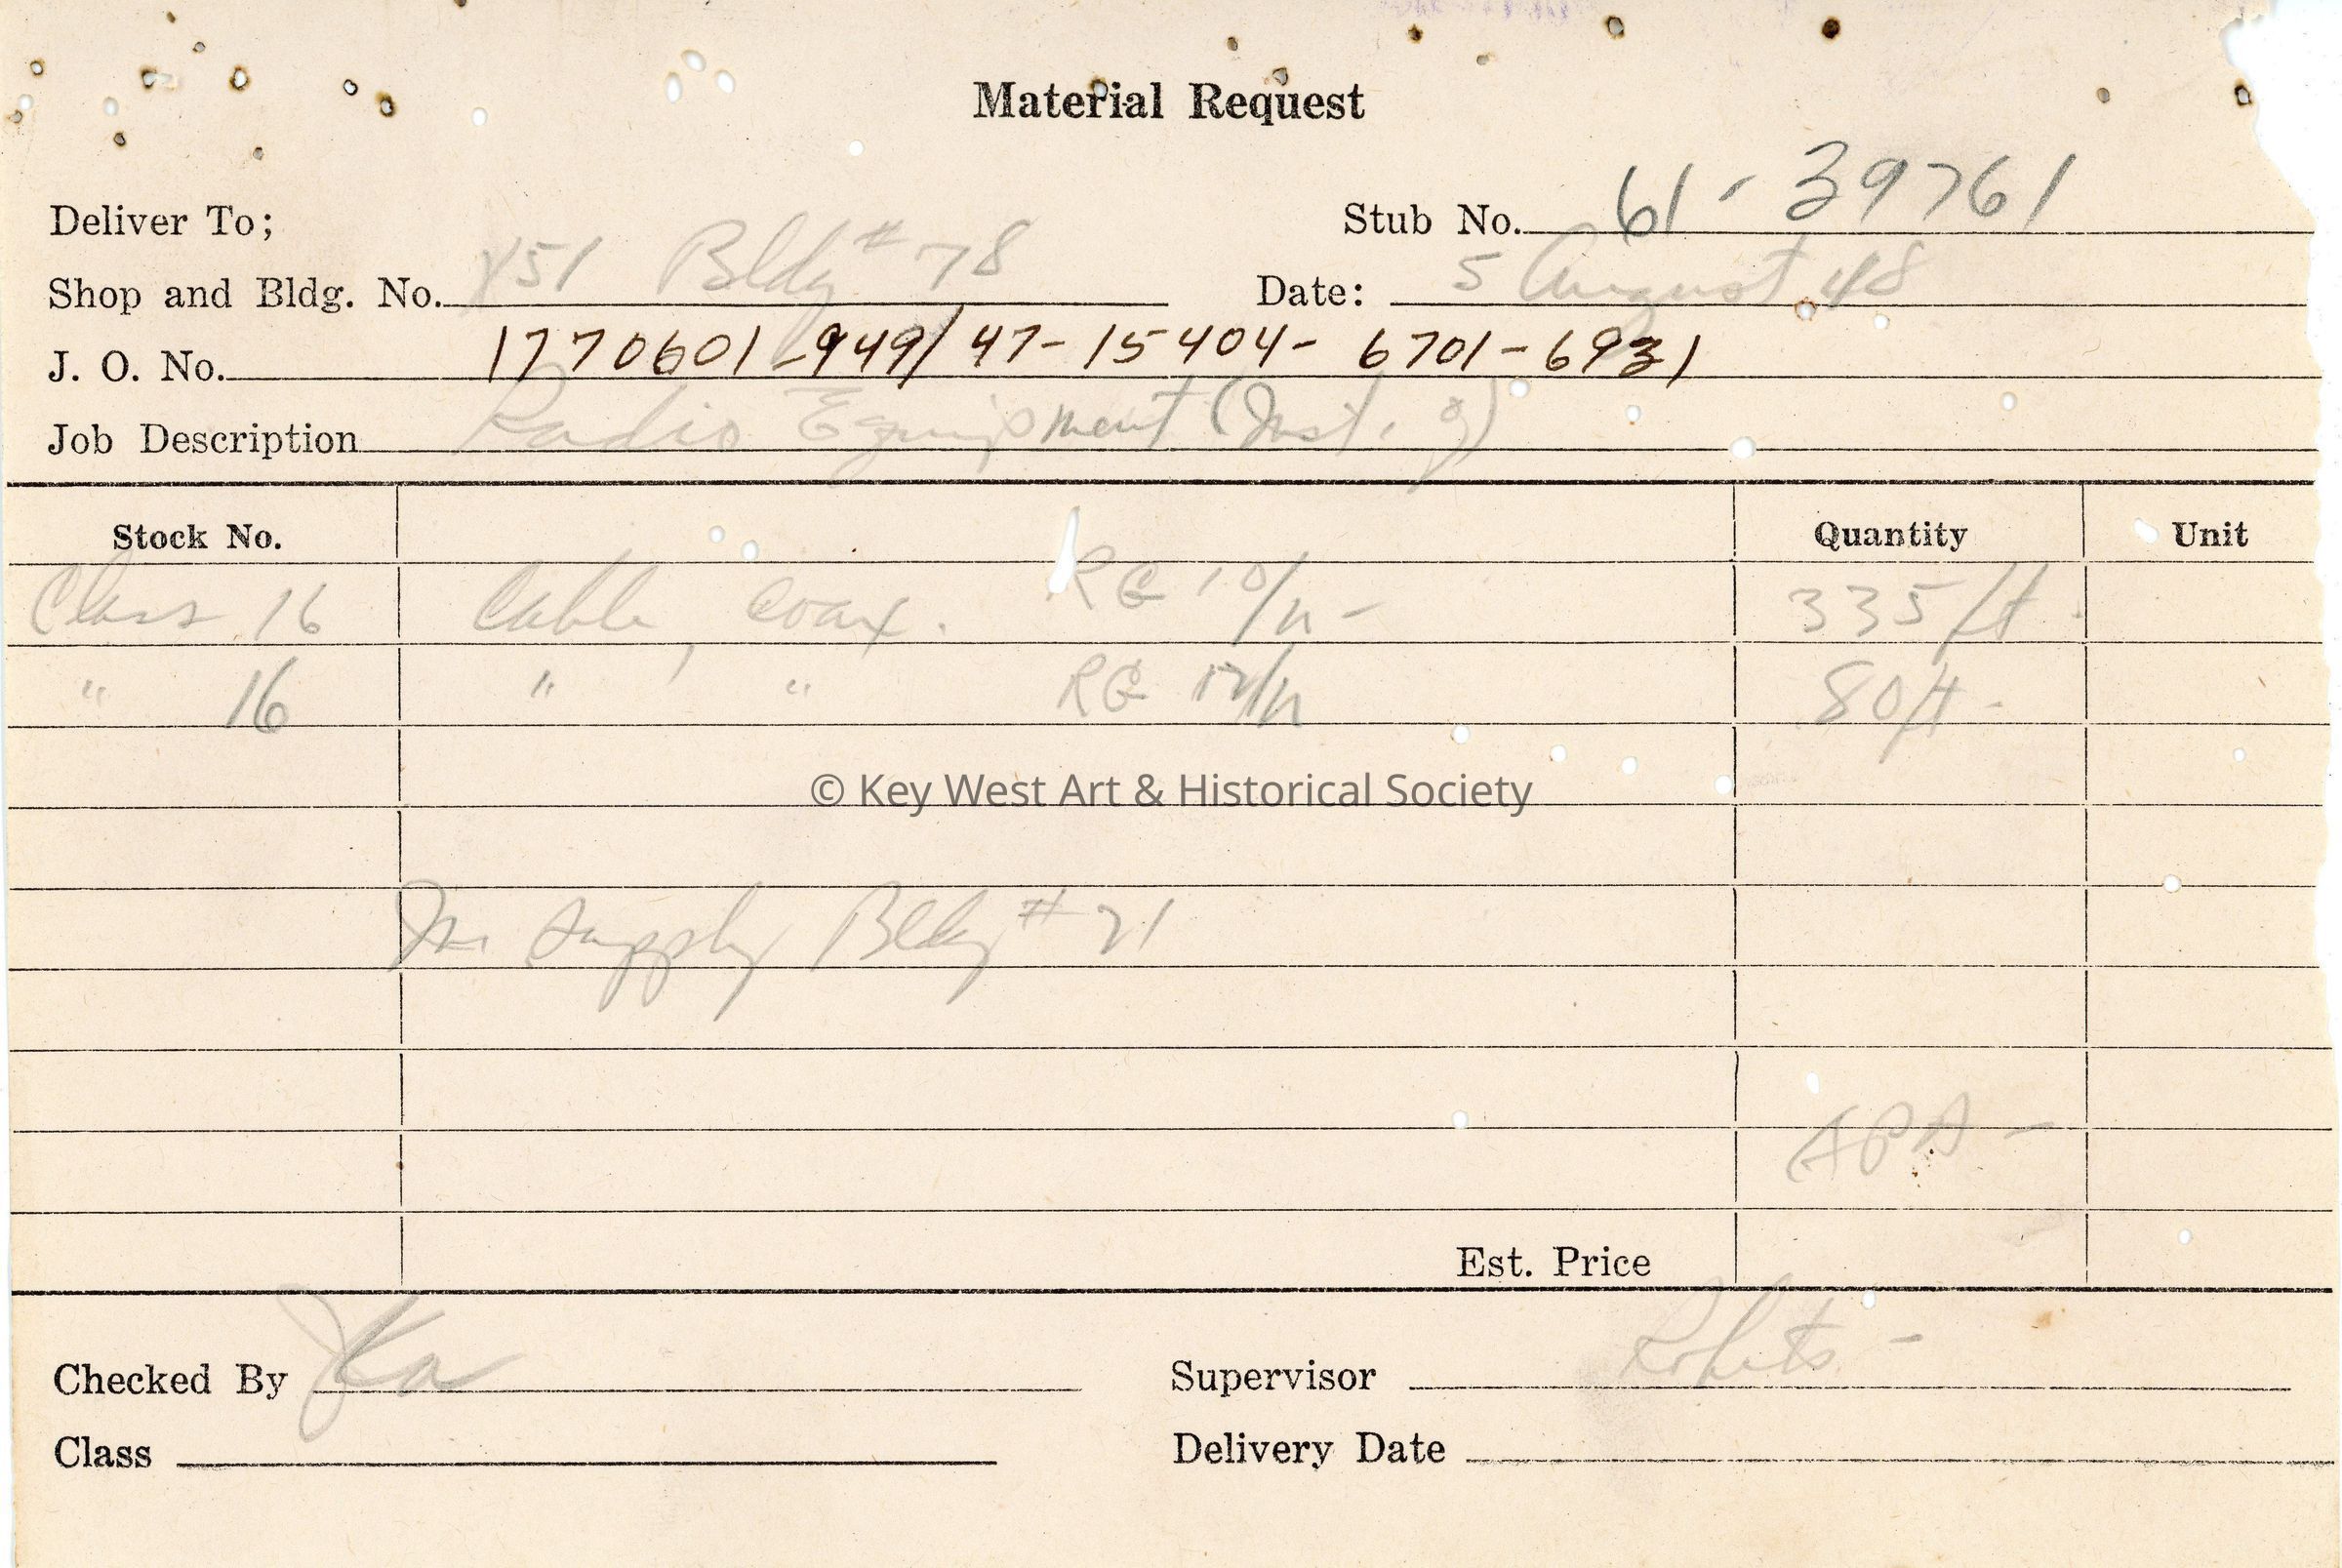 Material Request
Deliver To;
Stub No. 61-39761
Shop and Bldg. No. X51 Bldg #78
Date: 5 August 48
J. O. No. 1770601-949/47-15404-6701-6931
Job Description Radio Equipment (Inst. of)
Stock No. Quantity Unit
Class 16 Cable, coax. RG 10/u - 335 ft.
" 16 " , " RG 12/u 80 ft.
© Key West Art & Historical Society
In Supply Bldg #71
Est. Price
Checked By
Supervisor Roberts -
Class
Delivery Date